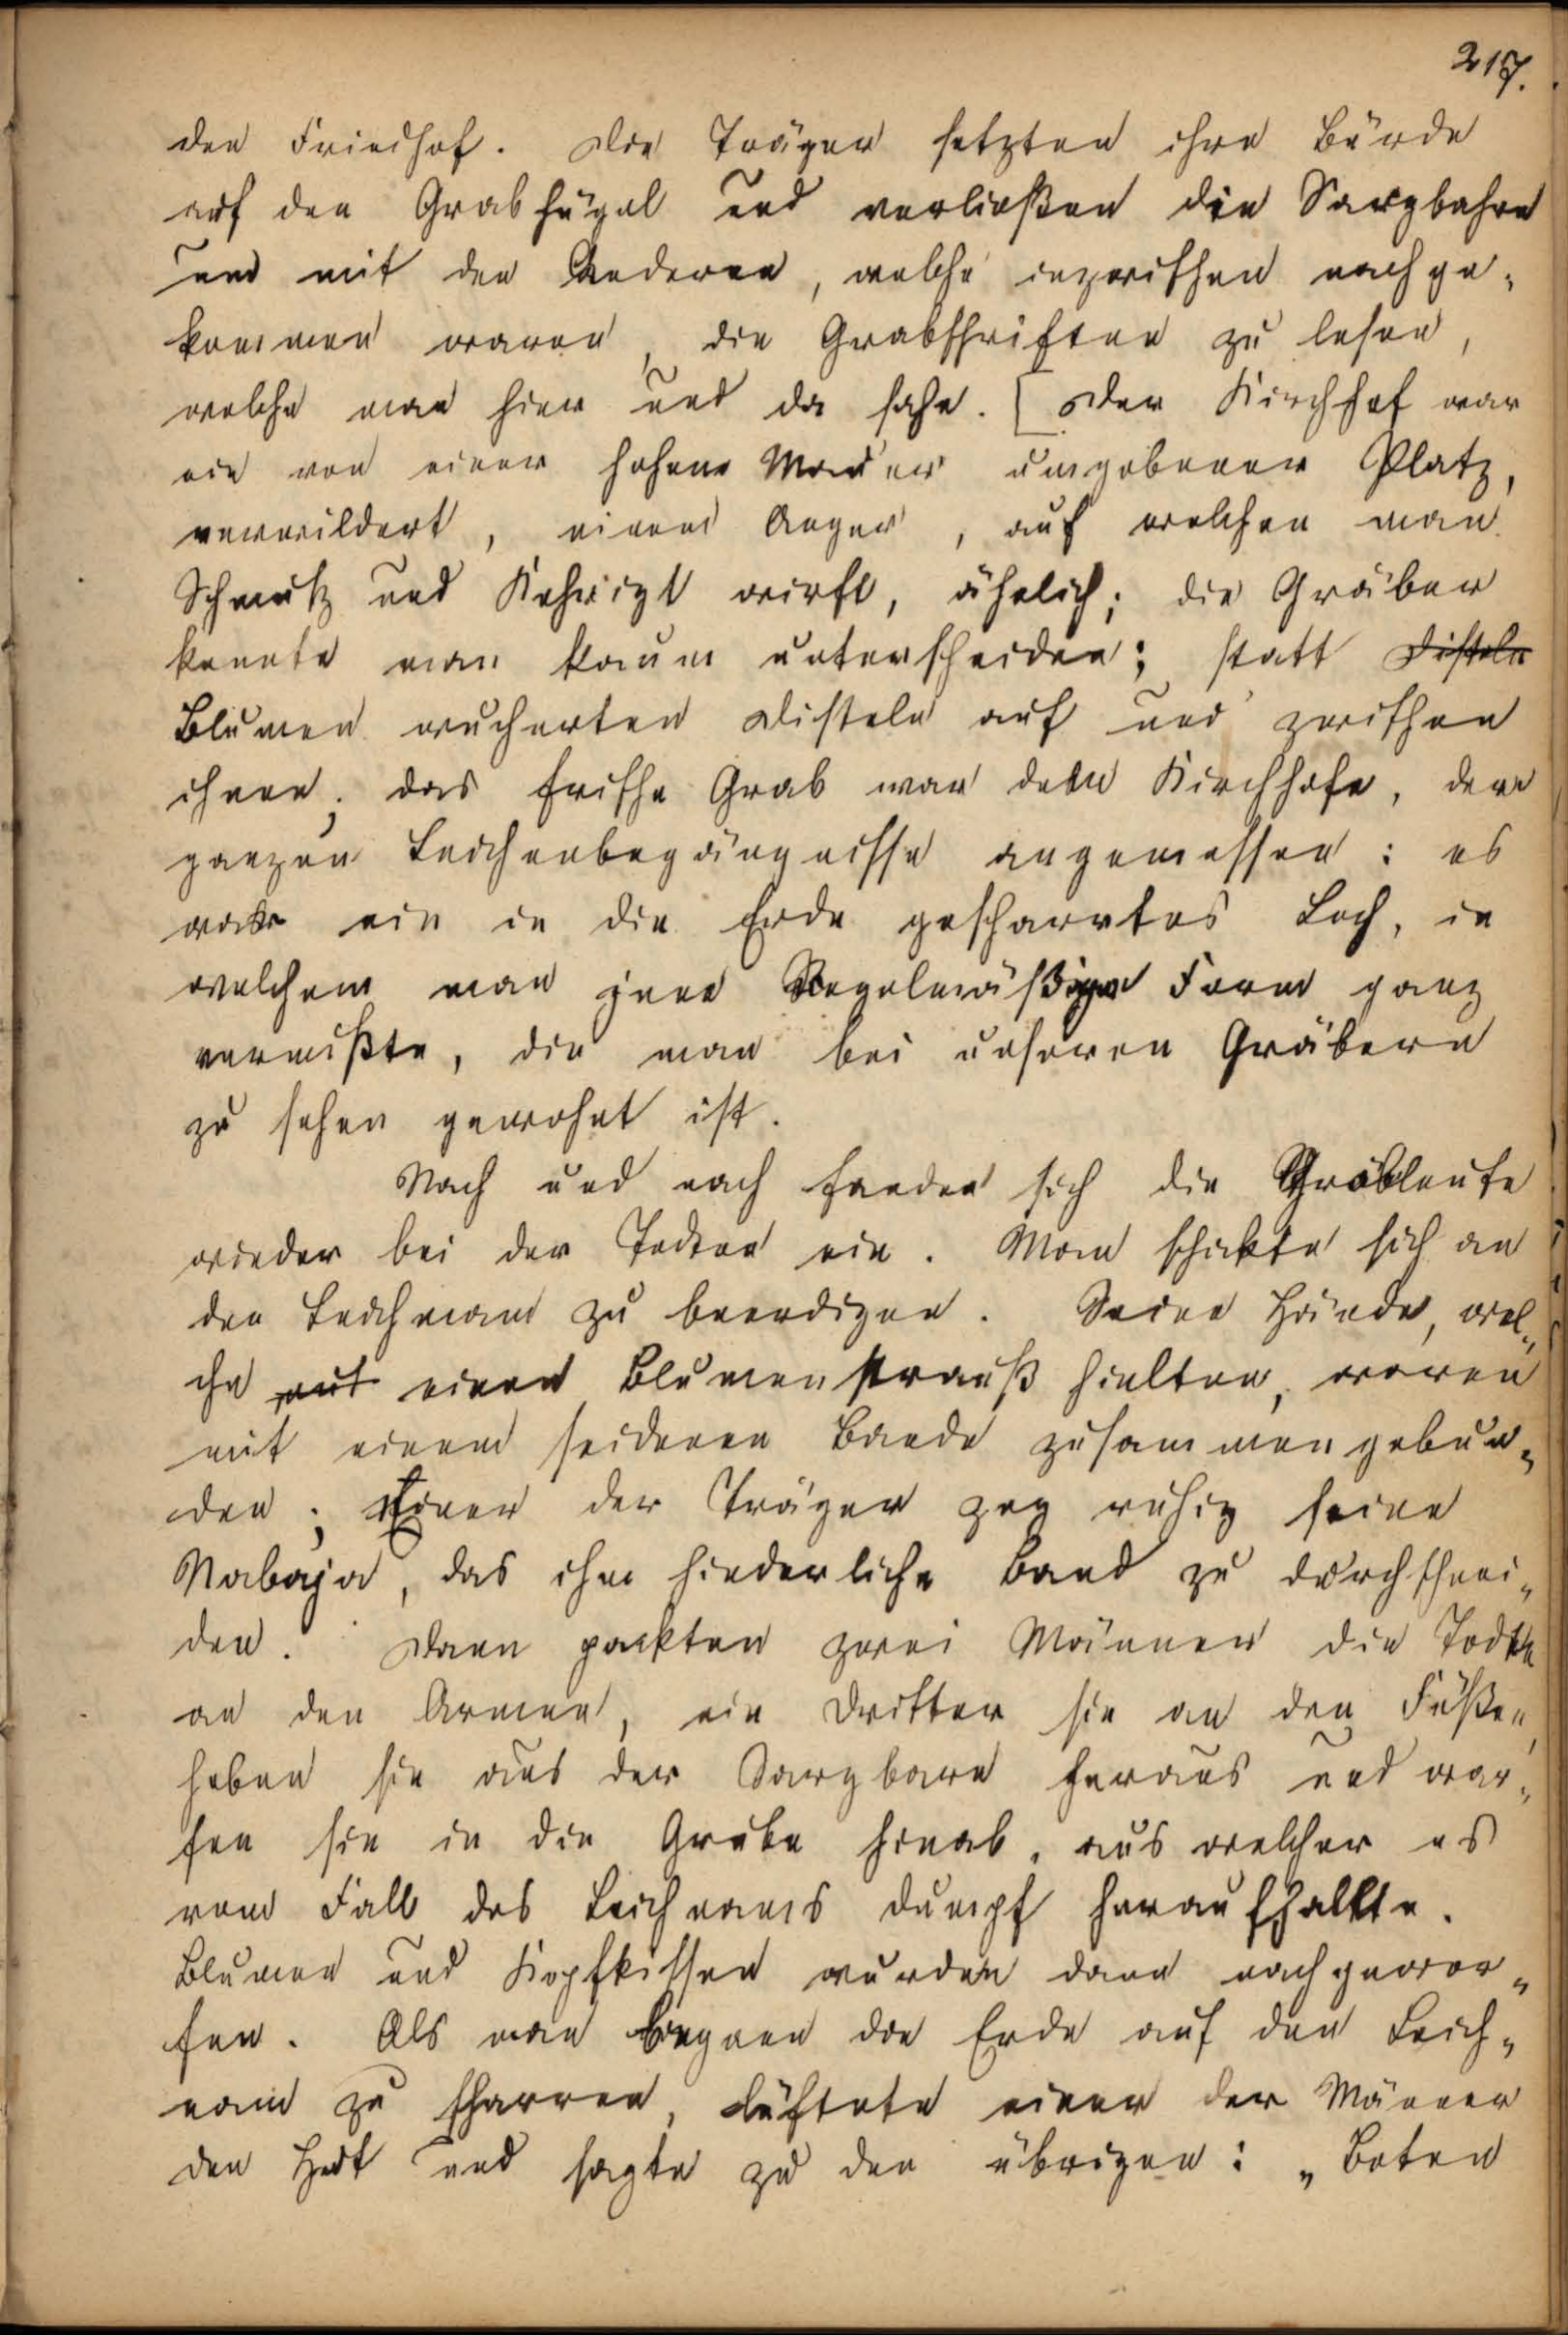 217.
den Friedhof. Die Träger setzten ihre Bürde
auf den Grabhügel und verließen die Sargbahre
um mit den Anderen, welche inzwischen nachge„
kommen waren, die Grabschriften zu lesen,
welche man hier und da sahe. [Der Kirchhof war
ein von einer hohen Mauer umgebener Platz,
verwildert, einem Anger, auf welchen man
Schmutz und Kehrigt wirft, ähnlich; die Gräber
konnte man kaum unterscheiden; statt Disteln
Blumen wucherten Disteln auf und zwischen
ihnen; das frische Grab war dem Kirchhofe, dem
ganzen Leichenbegängnisse angemessen: es
war ein in die Erde gescharrtes Loch, in
welchem man jene Regelmäßige Form ganz
vermißte, die man bei unseren Gräbern
zu sehen gewohnt ist.
Nach und nach fanden sich die Grableute
wieder bei der Todten ein. Man schickte sich an
den Leichnam zu beerdigen. Seine Hände, wel„
che einen Blumenstrauß hielten, waren
mit einem seidenen Bande zusammengebun„
den; Einer der Träger zog ruhig seine
Nabaja, das ihm hinderliche Band zu durchschnei„
den. Dann packten zwei Männer die Todte
an den Armen, ein Dritter sie an den Füßen,
hoben sie aus der Sargbare heraus und war„
fen sie in die Grube hinab, aus welcher es
vom Fall des Leichnams dumpf heraufhallte.
Blumen und Kopfkissen wurden dann nachgewor„
fen. Als man begann die Erde auf den Leich„
nam zu scharren, lüftete einer der Männer
den Hut und sagte zu den übrigen: „Beten